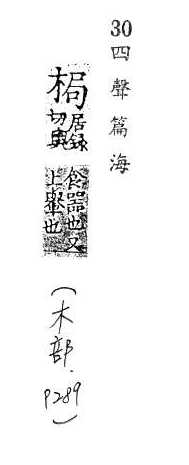 30 四聲篇海
梮 居録
切輿
食器也又
上轝也
(木部. P289)